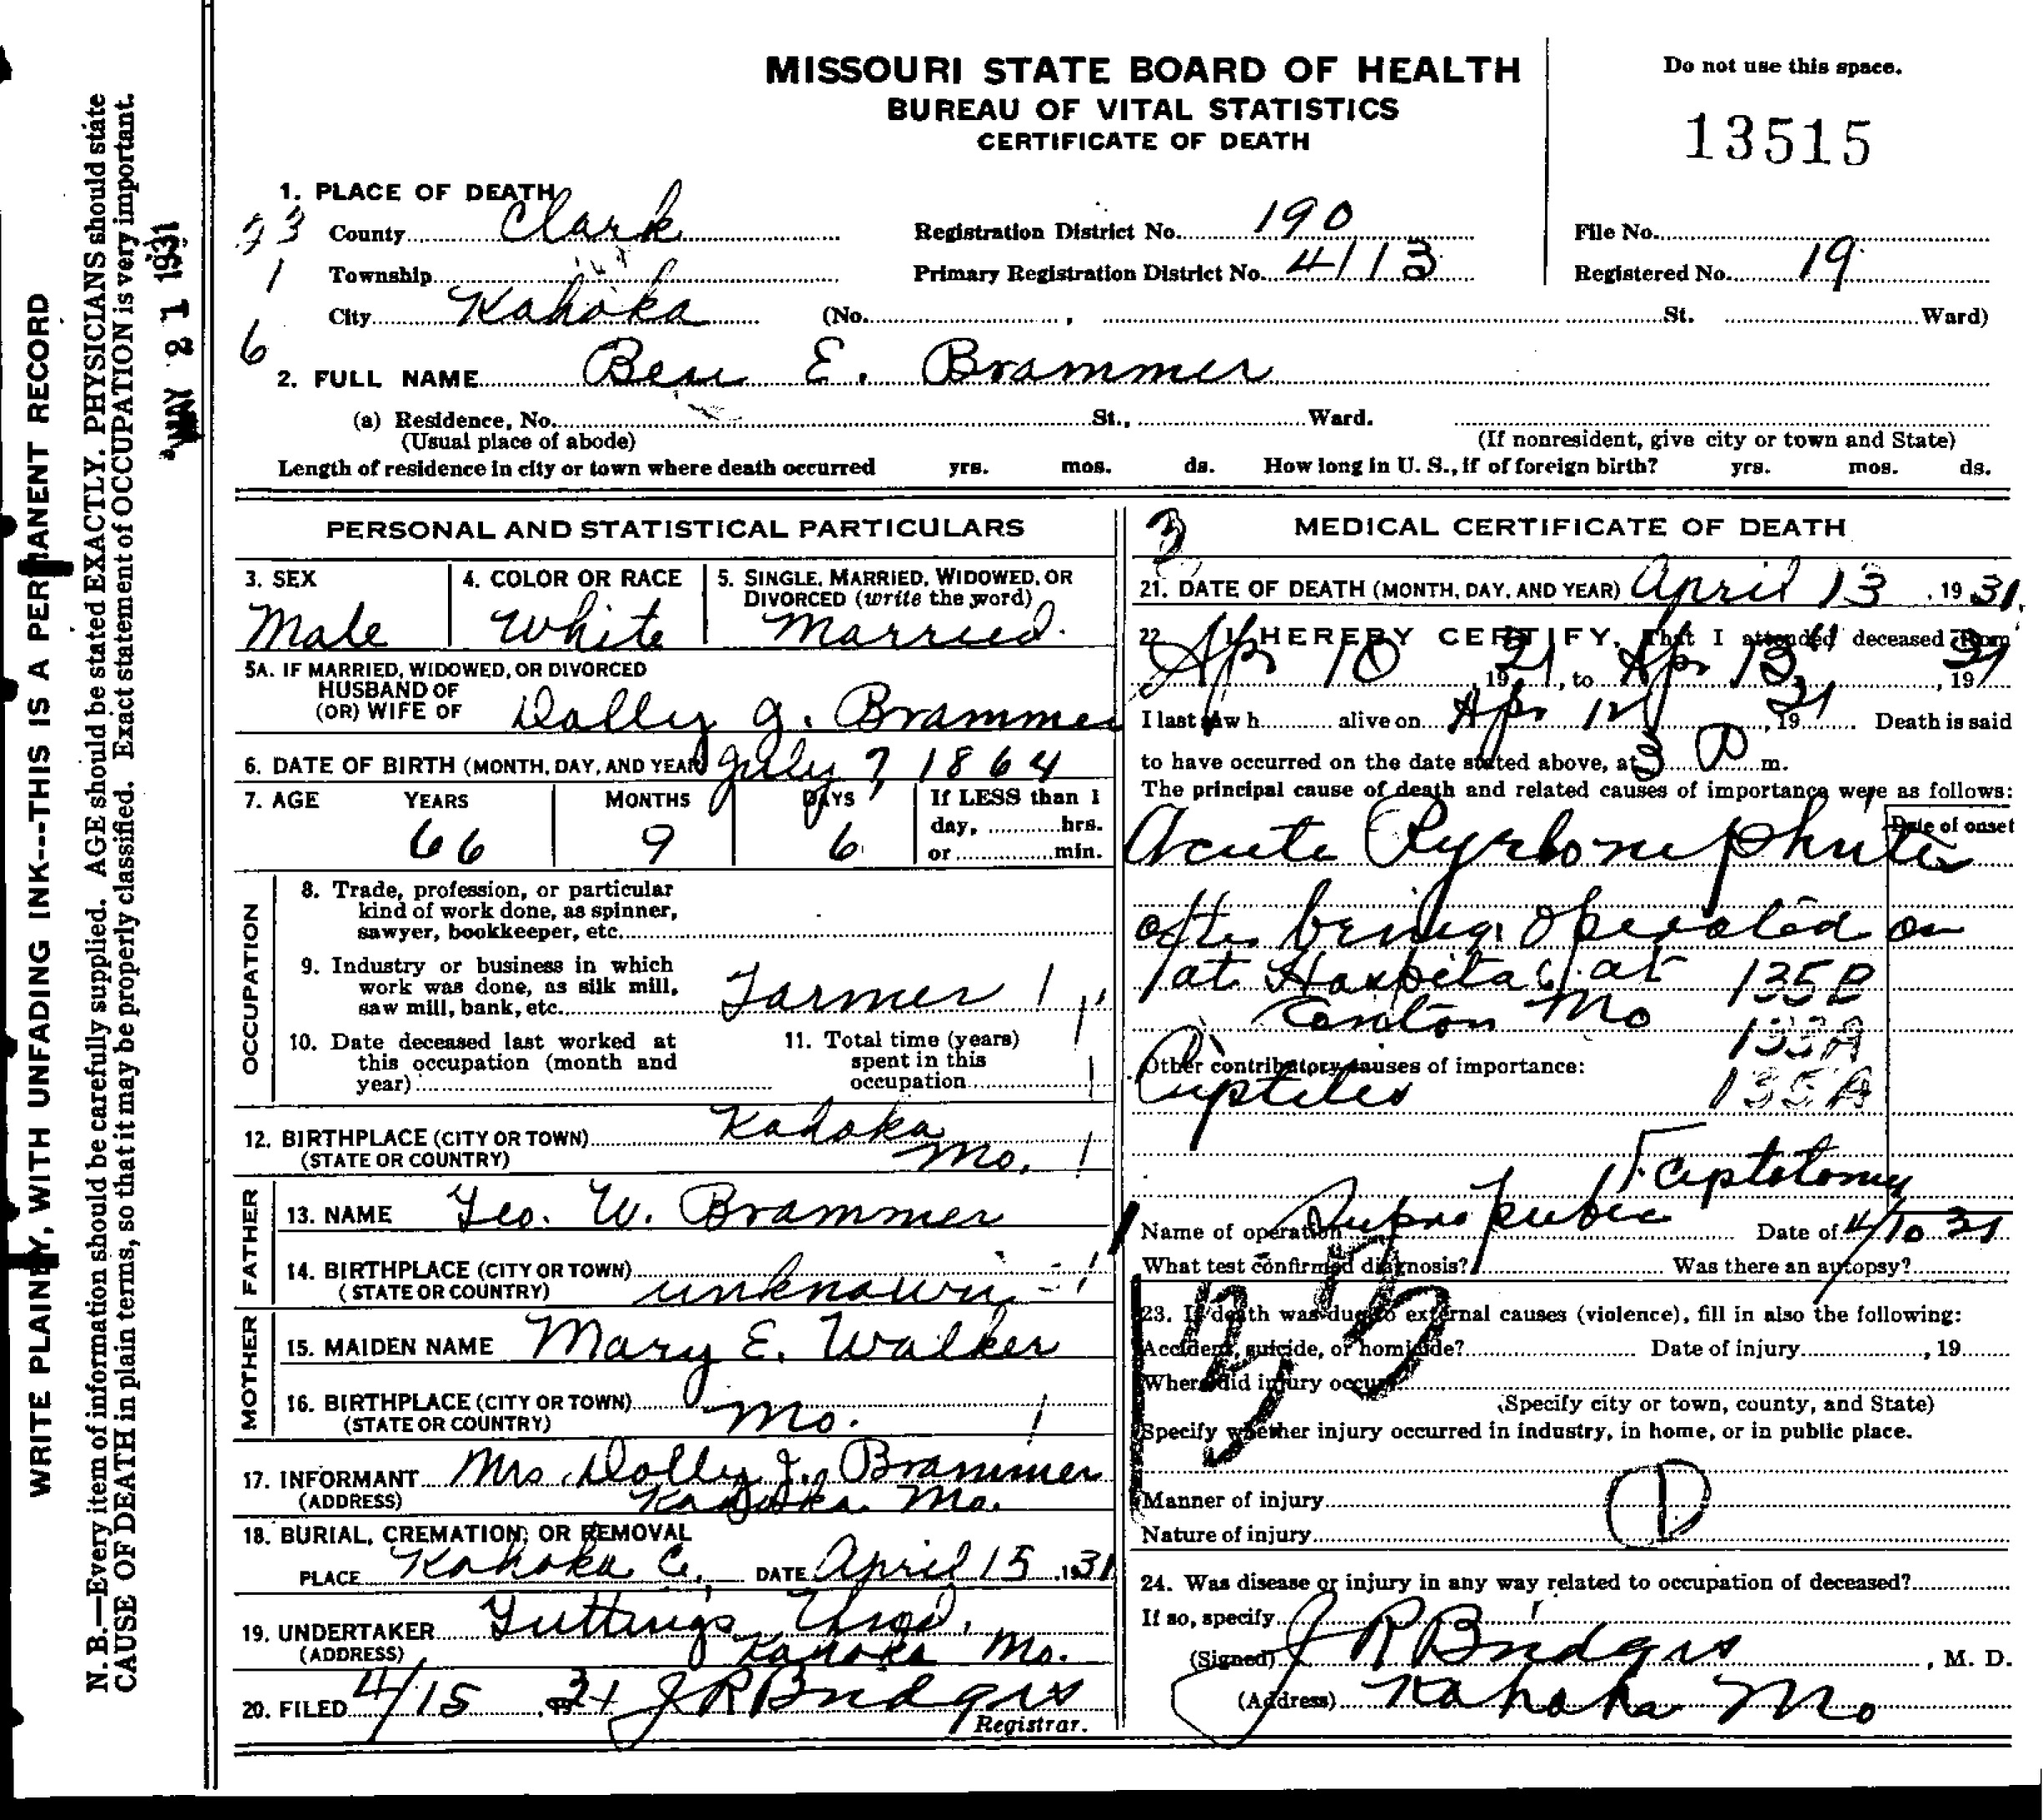 MISSOURI STATE BOARD OF HEALTH
BUREAU OF VITAL STATISTICS
CERTIFICATE OF DEATH
Do not use this space.
13515
1. PLACE OF DEATH
County Clark
Registration District No. 190
File No.
Township
Primary Registration District No. 4113
Registered No. 19
City Kahoka (No. , St. Ward)
2. FULL NAME Ben E. Brammer
(a) Residence, No. St., Ward.
(Usual place of abode) (If nonresident, give city or town and State)
Length of residence in city or town where death occurred yrs. mos. ds. How long in U. S., if of foreign birth? yrs. mos. ds.
PERSONAL AND STATISTICAL PARTICULARS
3. SEX
Male
4. COLOR OR RACE
White
5. SINGLE, MARRIED, WIDOWED, OR
DIVORCED (write the word)
Married.
5A. IF MARRIED, WIDOWED, OR DIVORCED
HUSBAND OF
(OR) WIFE OF Dolly J. Brammer
6. DATE OF BIRTH (MONTH, DAY, AND YEAR) July 7, 1864
7. AGE YEARS MONTHS DAYS If LESS than 1
day, hrs.
or min.
66 9 6
OCCUPATION
8. Trade, profession, or particular
kind of work done, as spinner,
sawyer, bookkeeper, etc.
9. Industry or business in which
work was done, as silk mill,
saw mill, bank, etc. Farmer
10. Date deceased last worked at
this occupation (month and
year)
11. Total time (years)
spent in this
occupation
12. BIRTHPLACE (CITY OR TOWN) Kahoka
(STATE OR COUNTRY) Mo.
FATHER
13. NAME Geo. W. Brammer
14. BIRTHPLACE (CITY OR TOWN)
(STATE OR COUNTRY) unknown
MOTHER
15. MAIDEN NAME Mary E. Walker
16. BIRTHPLACE (CITY OR TOWN)
(STATE OR COUNTRY) Mo.
17. INFORMANT Mrs Dolly J. Brammer
(ADDRESS) Kahoka Mo.
18. BURIAL, CREMATION, OR REMOVAL
PLACE Kahoka C. DATE April 15, 1931
19. UNDERTAKER
(ADDRESS) Kahoka Mo.
20. FILED 4/15 31 J R Bridges
Registrar.
3
MEDICAL CERTIFICATE OF DEATH
21. DATE OF DEATH (MONTH, DAY, AND YEAR) April 13, 1931.
22. I HEREBY CERTIFY, That I attended deceased from
Apr 10 1931, to Apr 13, 1931
I last saw h alive on Apr 12, 1931 Death is said
to have occurred on the date stated above, at 3 P m.
The principal cause of death and related causes of importance were as follows:
Date of onset
Acute
after being operated on
at Hospital at 135B
Canton Mo 133A
Other contributory causes of importance:
135A
Name of operation Supra pubic Date of 4/10 31
What test confirmed diagnosis? Was there an autopsy?
23. If death was due to external causes (violence), fill in also the following:
Accident, suicide, or homicide? Date of injury , 19
Where did injury occur?
(Specify city or town, county, and State)
Specify whether injury occurred in industry, in home, or in public place.
Manner of injury
Nature of injury
24. Was disease or injury in any way related to occupation of deceased?
If so, specify
(Signed) J R Bridges, M. D.
(Address) Kahoka Mo
WRITE PLAINLY, WITH UNFADING INK---THIS IS A PERMANENT RECORD
N. B.—Every item of information should be carefully supplied. AGE should be stated EXACTLY. PHYSICIANS should state
CAUSE OF DEATH in plain terms, so that it may be properly classified. Exact statement of OCCUPATION is very important.
MAY 21 1931